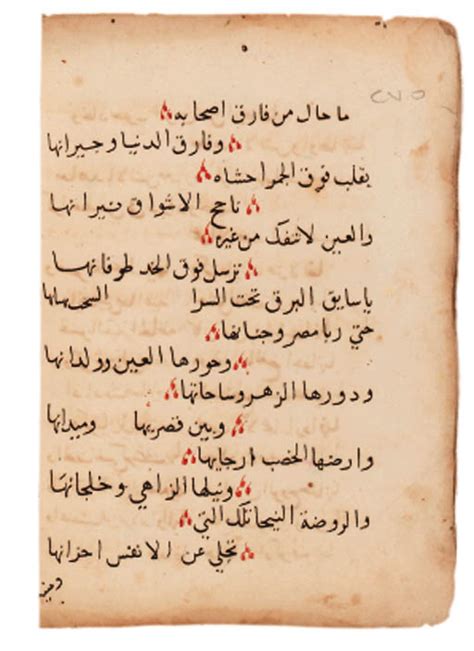 ٢٧٥
ما حال من فارق اصحابه
وفارق الدنيا وجيرانها
يقلب فوق الجمر احشاه
تاجج الاشواق نيرانها
والعين لا تنفك من غيره
ترسل فوق الخد طوفانها
يا سايق البرق تحت السرا
حتي ربا مصر وجناتها
وحورها العين وولدانها
ودورها الزهر وساحاتها
وبين قصريها وميدانها
وارضها الخصب ارجايها
ونيلها الزاهي وخلجانها
والروضة الفيحا تلك التي
تجلي عن الانفس احزانها